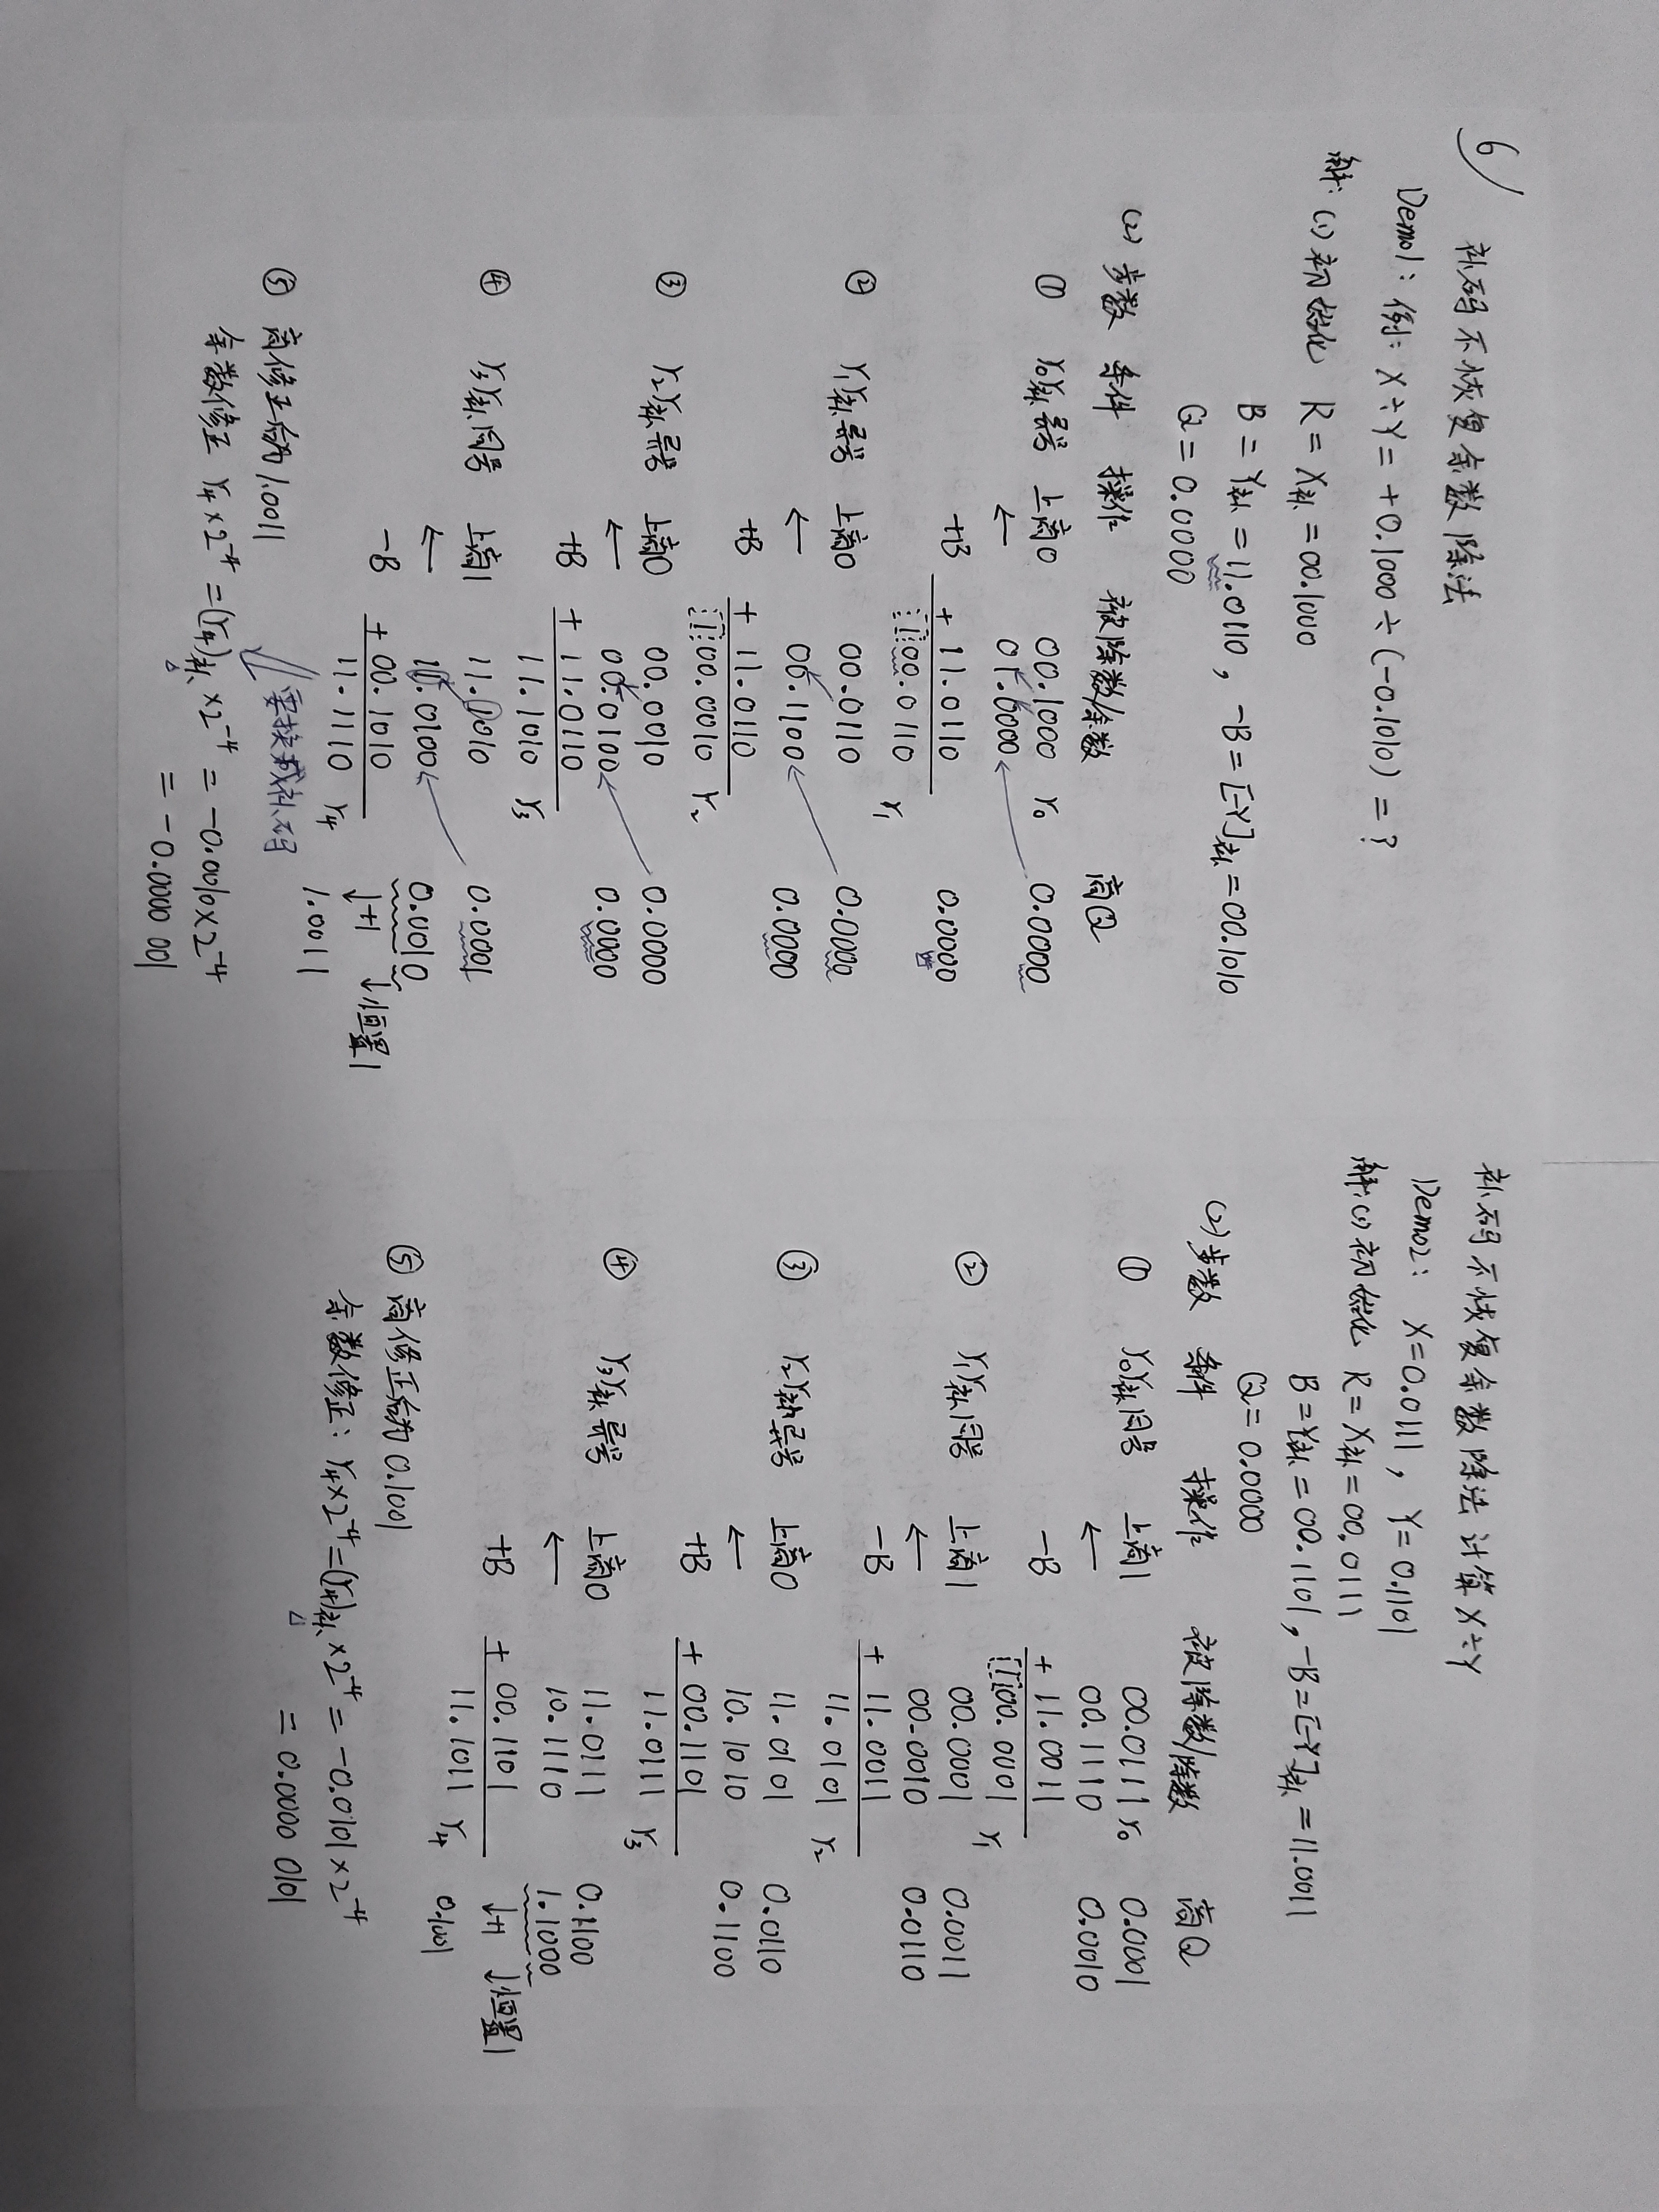 6
补码不恢复余数除法
Demo1: 例: X÷Y = +0.1000÷(-0.1010) = ?
解: (1) 初始化 R = X补 = 00.1000
B = Y补 = 11.0110, -B = [-Y]补 = 00.1010
Q = 0.0000
(2) 步数 条件 操作 被除数/余数 商Q
① r0Y补异号 上商0 00.1000 r0 0.0000
← 01.0000
+B + 11.0110 0.0000
1 00.0110 r1
② r1Y补异号 上商0 00.0110 0.0000
← 00.1100 0.0000
+B + 11.0110
1 00.0010 r2
③ r2Y补异号 上商0 00.0010 0.0000
← 00.0100 0.0000
+B + 11.0110
11.1010 r3
④ r3Y补同号 上商1 11.1010 0.0001
← 11.0100 0.0010
-B + 00.1010 ↓+1 ↓恒置1
11.1110 r4 1.0011
⑤ 商修正后为1.0011 要换成补码
余数修正 r4×2⁻⁴ = (r4)补×2⁻⁴ = -0.0010×2⁻⁴
= -0.0000 001
补码不恢复余数除法计算X÷Y
Demo2: X=0.0111, Y=0.1101
解: (1) 初始化 R = X补 = 00.0111
B = Y补 = 00.1101, -B = [-Y]补 = 11.0011
Q = 0.0000
(2) 步数 条件 操作 被除数/除数 商Q
① r0Y补同号 上商1 00.0111 r0 0.0001
← 00.1110 0.0010
-B + 11.0011
1 00.0001 r1
② r1Y补同号 上商1 00.0001 0.0011
← 00.0010 0.0110
-B + 11.0011
11.0101 r2
③ r2Y补异号 上商0 11.0101 0.0110
← 10.1010 0.1100
+B + 00.1101
11.0111 r3
④ r3Y补异号 上商0 11.0111 0.1100
← 10.1110 1.1000
+B + 00.1101 ↓+1 ↓恒置1
11.1011 r4 0.1001
⑤ 商修正后为0.1001
余数修正: r4×2⁻⁴ = (r4)补×2⁻⁴ = -0.0101×2⁻⁴
= 0.0000 0101